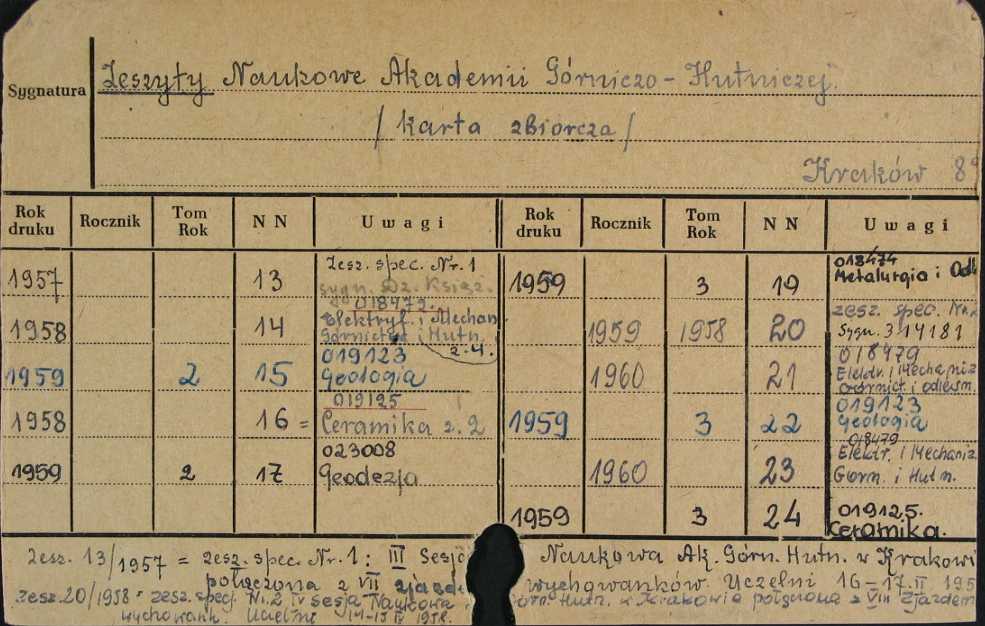 Sygnatura
Zeszyty Naukowe Akademii Górniczo-Hutniczej
/karta zbiorcza/
Kraków 8
Rok druku Rocznik Tom Rok N N Uwagi Rok druku Rocznik Tom Rok N N Uwagi
1957 13 Zesz. spec. Nr. 1
sygn. Dz. Księż.
018479.
1958 14 Elektryf. i Mechan.
Górnictwa i Hutn.
z. 4.
1959 2 15 019123
Geologia
1958 16 = 019125
Ceramika z. 2
1959 2 17 023008
Geodezja
1959 3 19 018474
Metalurgia i Odl
1959 1958 20 zesz. spec. Nr. 2
Sygn. 314181
1960 21 018479
Elektr. i Mechaniz
Górnict. i
1959 3 22 019123
Geologia
1960 23 018479
Elektr. i Mechaniz.
Górn. i Hutn.
1959 3 24 019125.
Ceramika.
Zesz. 13/1957 = zesz. spec. Nr. 1: III Sesja Naukowa Ak. Górn. Hutn. w Krakowi
połączona z VII zjazde wychowanków Uczelni 16-17.II 195
Zesz. 20/1958 = zesz. spec. Nr. 2 IV Sesja Naukowa Górn. Hutn. w Krakowie połączona z VIII Zjazdem
wychowank. Uczelni 1958.